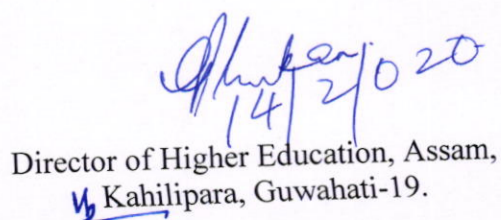 14/2/020
Director of Higher Education, Assam,
Kahilipara, Guwahati-19.